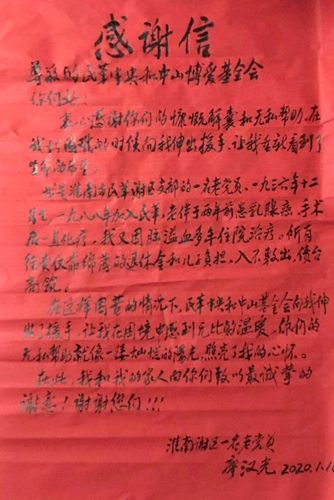 感谢信
尊敬的民革中央和中山博爱基金会
你们好：
衷心感谢你们的慷慨解囊和无私帮助，在
我最困难的时候向我伸出援手，让我重新看到了
生命的
我是淮南市民革谢区支部的一名老党员，一九三六年十二
月生，一九八八年加入民革，老伴于两年前患乳腺癌，手术
后一直化疗，我又因脑溢血多年住院治疗。所有
仅靠绵薄的退休金和儿子负担，入不敷出，债台
高筑。
在这样困苦的情况下，民革中央和中山基金会向我伸
出了援手，让我在困境中感到无比的温暖，你们的
无私帮助就像一缕灿烂的阳光，照亮了我的心怀。
在此，我和我的家人向你们致以最诚挚的
谢意！谢谢您们！！！
淮南谢区一名老党员
廖汉光 2020.1.1